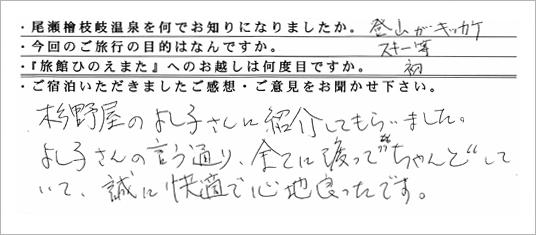 ・尾瀬檜枝岐温泉を何でお知りになりましたか。 登山がキッカケ
・今回のご旅行の目的はなんですか。 スキー等
・『旅館ひのえまた』へのお越しは何度目ですか。 初
・ご宿泊いただきましたご感想・ご意見をお聞かせ下さい。
杉野屋のよし子さんに紹介してもらいました。
よし子さんの言う通り、全てに渡って“ちゃんと”して
いて、誠に快適で心地良ったです。